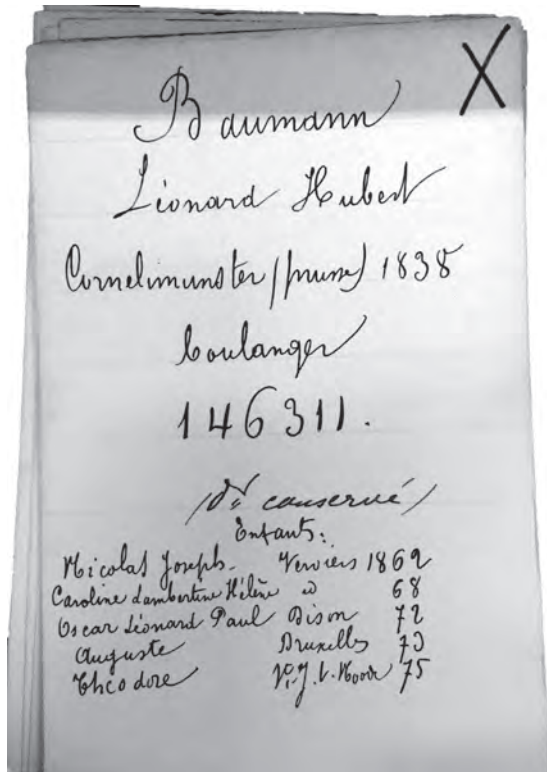 X
Baumann
Léonard Hubert
Cornelimunster (prusse) 1838
boulanger
146311.
(dr conservé)
Enfants:
Nicolas Joseph. Verviers 1862
Caroline Lambertine Hélène id 68
Oscar Léonard Paul Dison 72
Auguste Bruxelles 73
Théodore J. t. Noode 75